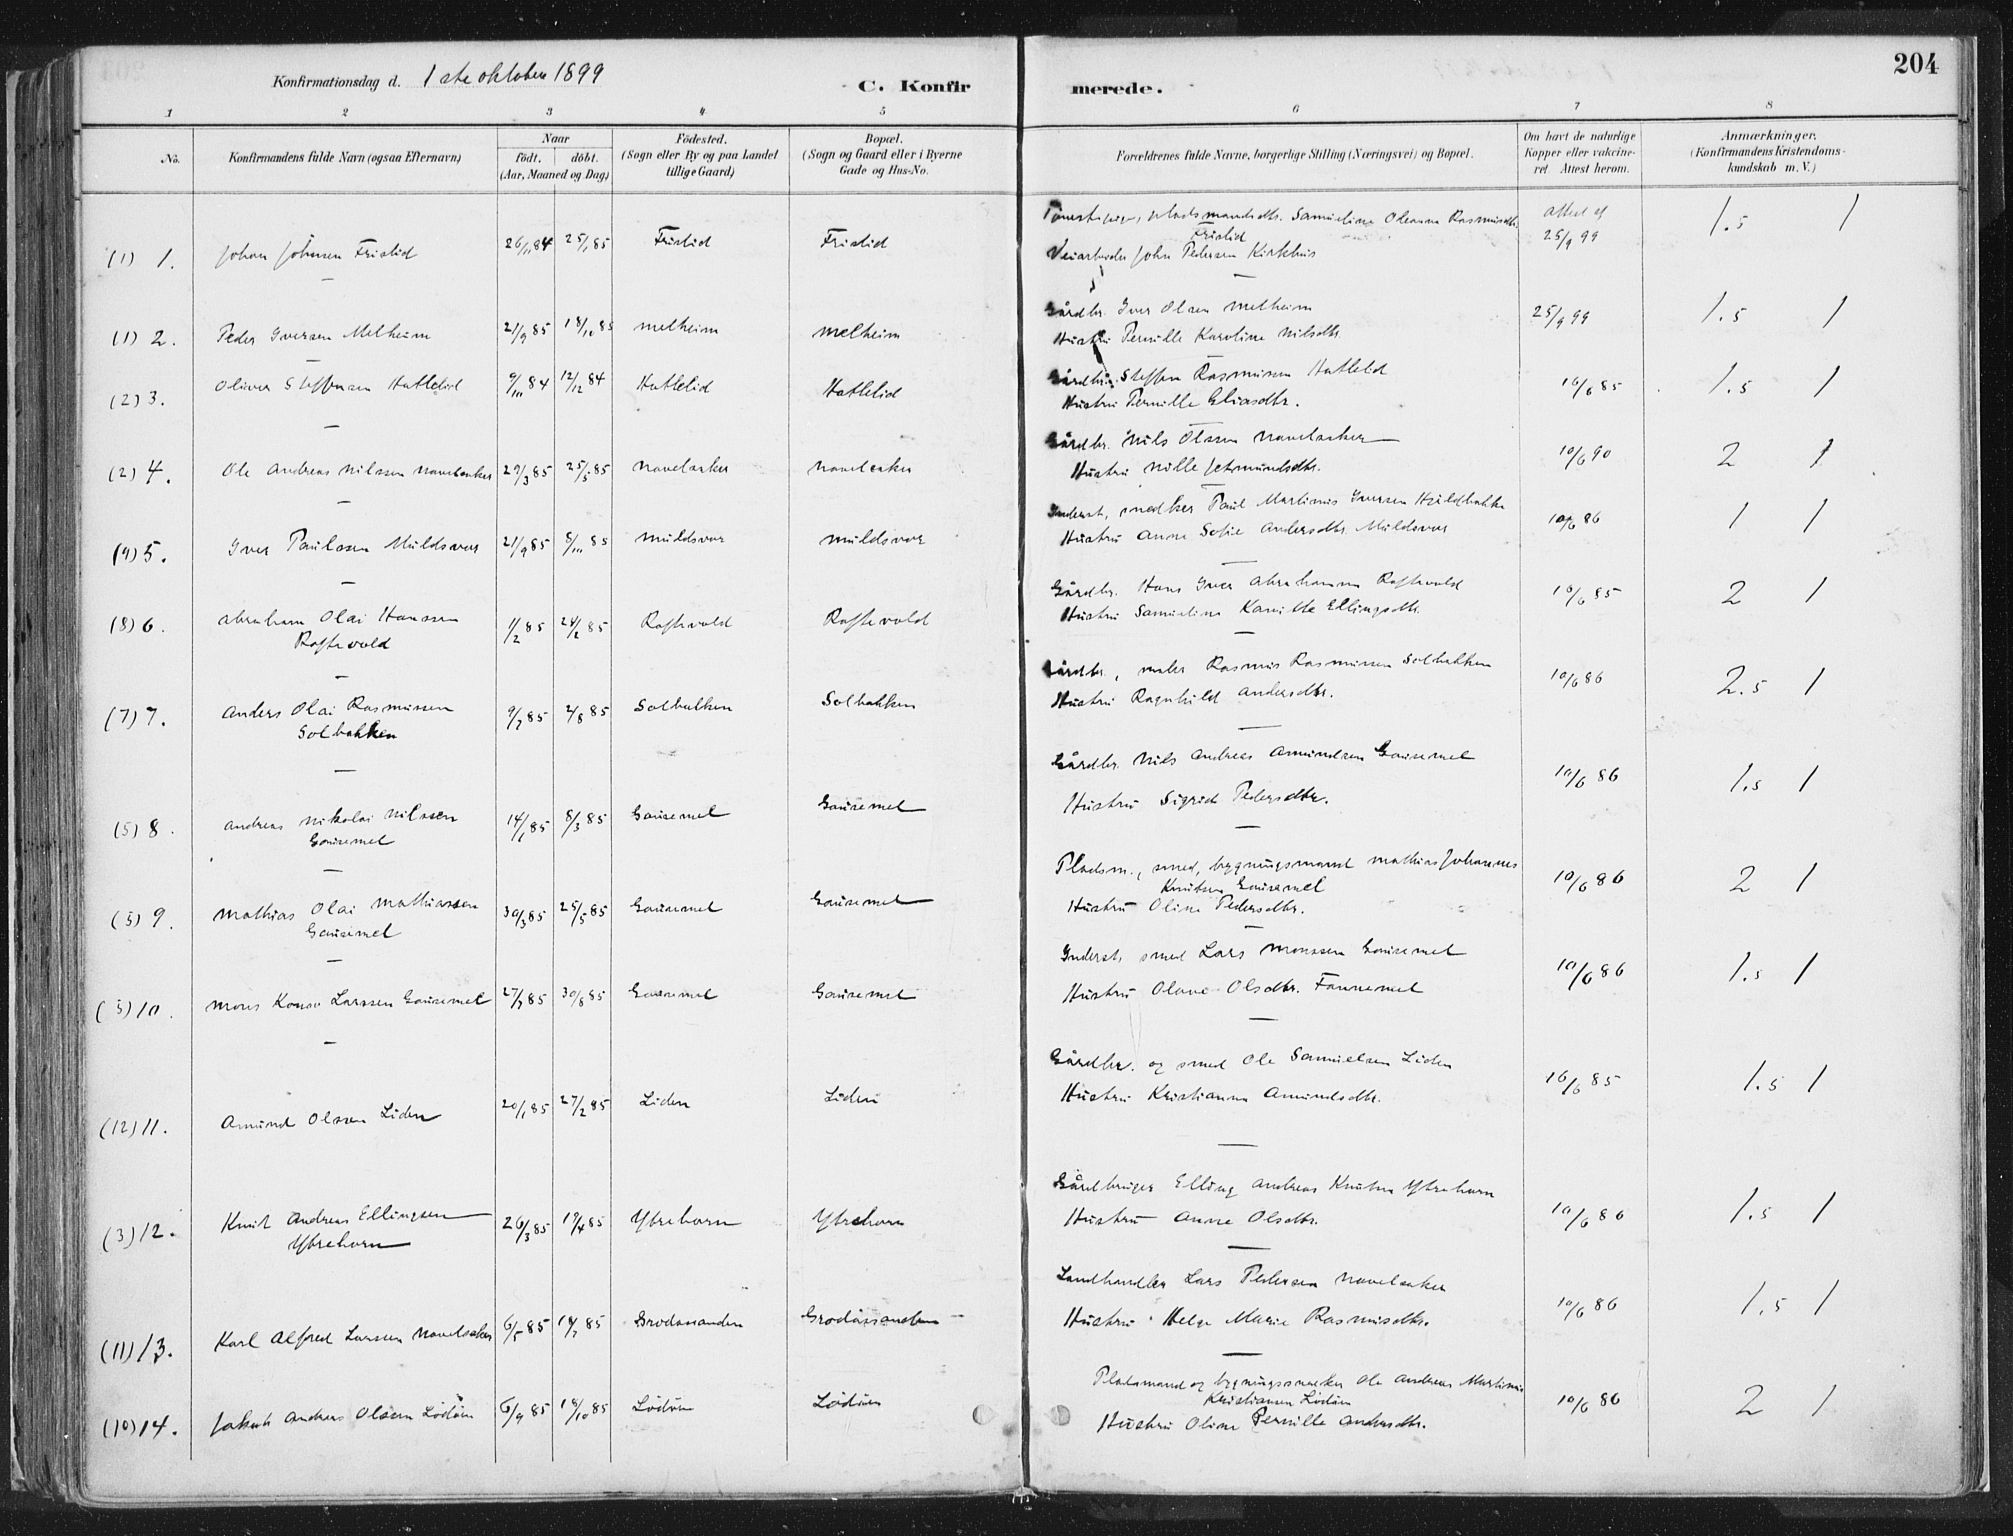 Konfirmationsdag d. 1ste oktober 1899
C. Konfirmerede.
204
1 2 3 4 5 6 7 8
No.
Konfirmandens fulde Navn (ogsaa Efternavn)
Naar
födt. | döbt.
(Aar, Maaned og Dag)
Födested.
(Sogn eller By og paa Landet
tillige Gaard)
Bopæl.
(Sogn og Gaard eller i Byerne
Gade og Hus-No.
Forældrenes fulde Navne, borgerlige Stilling (Næringsvei) og Bopæl.
Om havt de naturlige
Kopper eller vakcine-
ret. Attest herom.
Anmærkninger.
(Konfirmandens Kristendoms-
kundskab m. V.)
(1) 1. Johan Johnsen Frislid 26/11 84 25/1 85 Frislid Frislid
pladsmandsdtr. Samueline Oleanna Rasmusdtr.
Frislid
Veiarbeider John Pedersen Kirkhus
attest af
25/9 99 1.5 1
(1) 2. Peder Iversen Melheim 21/9 85 18/10 85 Melheim Melheim
Gårdbr. Iver Olsen Melheim
Hustru Pernille Karoline Nilsdtr.
25/9 99 1.5 1
(2) 3. Oliver Steffensen Hatlelid 9/11 84 12/12 84 Hatlelid Hatlelid
Gårdbr. Steffen Rasmussen Hatlelid
Hustru Pernille Eliasdtr.
16/6 85 1.5 1
(2) 4. Ole Andreas Nilssen Navelsaker 29/3 85 25/5 85 Navelsaker Navelsaker
Gårdbr. Nils Olssen Navelsaker
Hustru Nille Jetmundsdtr.
10/6 90 2 1
(9) 5. Iver Paulssen Muldsvor 21/9 85 8/11 85 Muldsvor Muldsvor
Inderst, snedker Paul Martinus Iversen Hjeldbakke
Hustru Anne Sofie Andersdtr. Muldsvor
10/6 86 1 1
(8) 6. Abraham Olai Hanssen
Raftevold
1/2 85 24/2 85 Raftevold Raftevold
Gårdbr. Hans Iver Abrahamsen Raftevold
Hustru Samueline Kamilla Ellingsdtr.
16/6 85 2 1
(7) 7. Anders Olai Rasmussen
Solbakken
9/7 85 2/8 85 Solbakken Solbakken
Gårdbr., maler Rasmus Rasmussen Solbakken
Hustru Ragnhild Andersdtr.
10/6 86 2.5 1
(5) 8. Andreas Nikolai Nilssen
Gausemel
14/1 85 8/3 85 Gausemel Gausemel
Gårdbr. Nils Andreas Amundsen Gausemel
Hustru Sigrid Pedersdtr.
10/6 86 1.5 1
(5) 9. Mathias Olai Mathiassen
Gausemel
30/3 85 25/5 85 Gausemel Gausemel
Pladsm., smed, bygningsmand Mathias Johannes
Knutsen Gausemel
Hustru Oline Pedersdtr.
10/6 86 2 1
(5) 10. Mons Konov Larssen Gausemel 27/7 85 30/8 85 Gausemel Gausemel
Inderst, smed Lars Monssen Gausemel
Hustru Olave Olsdtr. Fannemel
10/6 86 1.5 1
(12) 11. Amund Olssen Liden 20/1 85 27/2 85 Liden Liden
Gårdbr. og smed Ole Samuelsen Liden
Hustru Kristianna Amundsdtr.
16/6 85 1.5 1
(3) 12. Knut Andreas Ellingsen
Ytrehorn
26/3 85 19/4 85 Ytrehorn Ytrehorn
Gårdbruger Elling Andreas Knutsen Ytrehorn
Hustru Anne Olsdtr.
10/6 86 1.5 1
(11) 13. Karl Alfred Larssen Navelsaker 6/5 85 19/7 85 Grodåssanden Grodåssanden
Landhandler Lars Pedersen Navelsaker
Hustru Helga Marie Rasmusdtr.
10/6 86 1.5 1
(10) 14. Jakob Andreas Olsen Lödöen 6/9 85 18/10 85 Lödöen Lödöen
Pladsmand og bygningssnekker Ole Andreas Martinus
Kristiansen Lödöen
Hustru Oline Pernille Andersdtr.
10/6 86 2 1